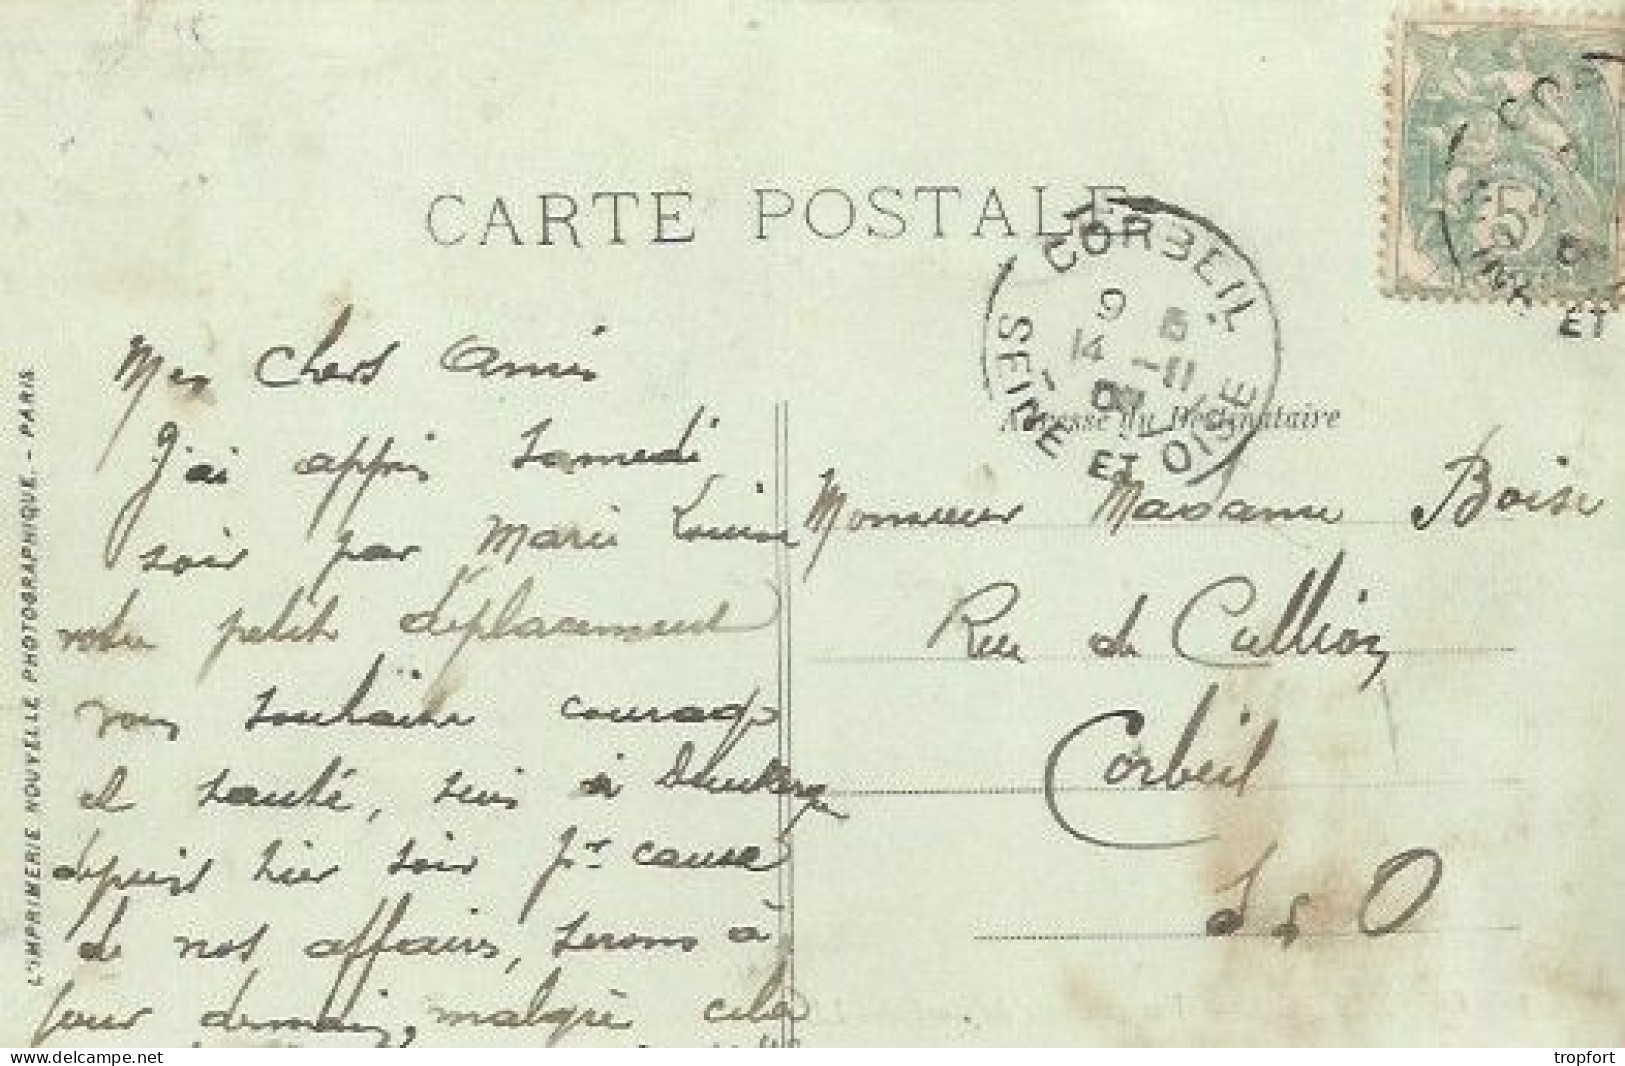 CARTE POSTALE
CORBEIL
9
14 -11
SEINE ET OISE
5
ET
Adresse du Destinataire
Mes chers Amis
J'ai appris Samedi
soir par Marie Louise
votre petit déplacement
vous souhaite courage
et santé, suis à Dunkerque
depuis hier soir pr cause
de nos affaires, serons à
jour demain, malgré cela
Monsieur Madame Boise
Rue de
Corbeil
S & O
L'IMPRIMERIE NOUVELLE PHOTOGRAPHIQUE. - PARIS
www.delcampe.net
tropfort